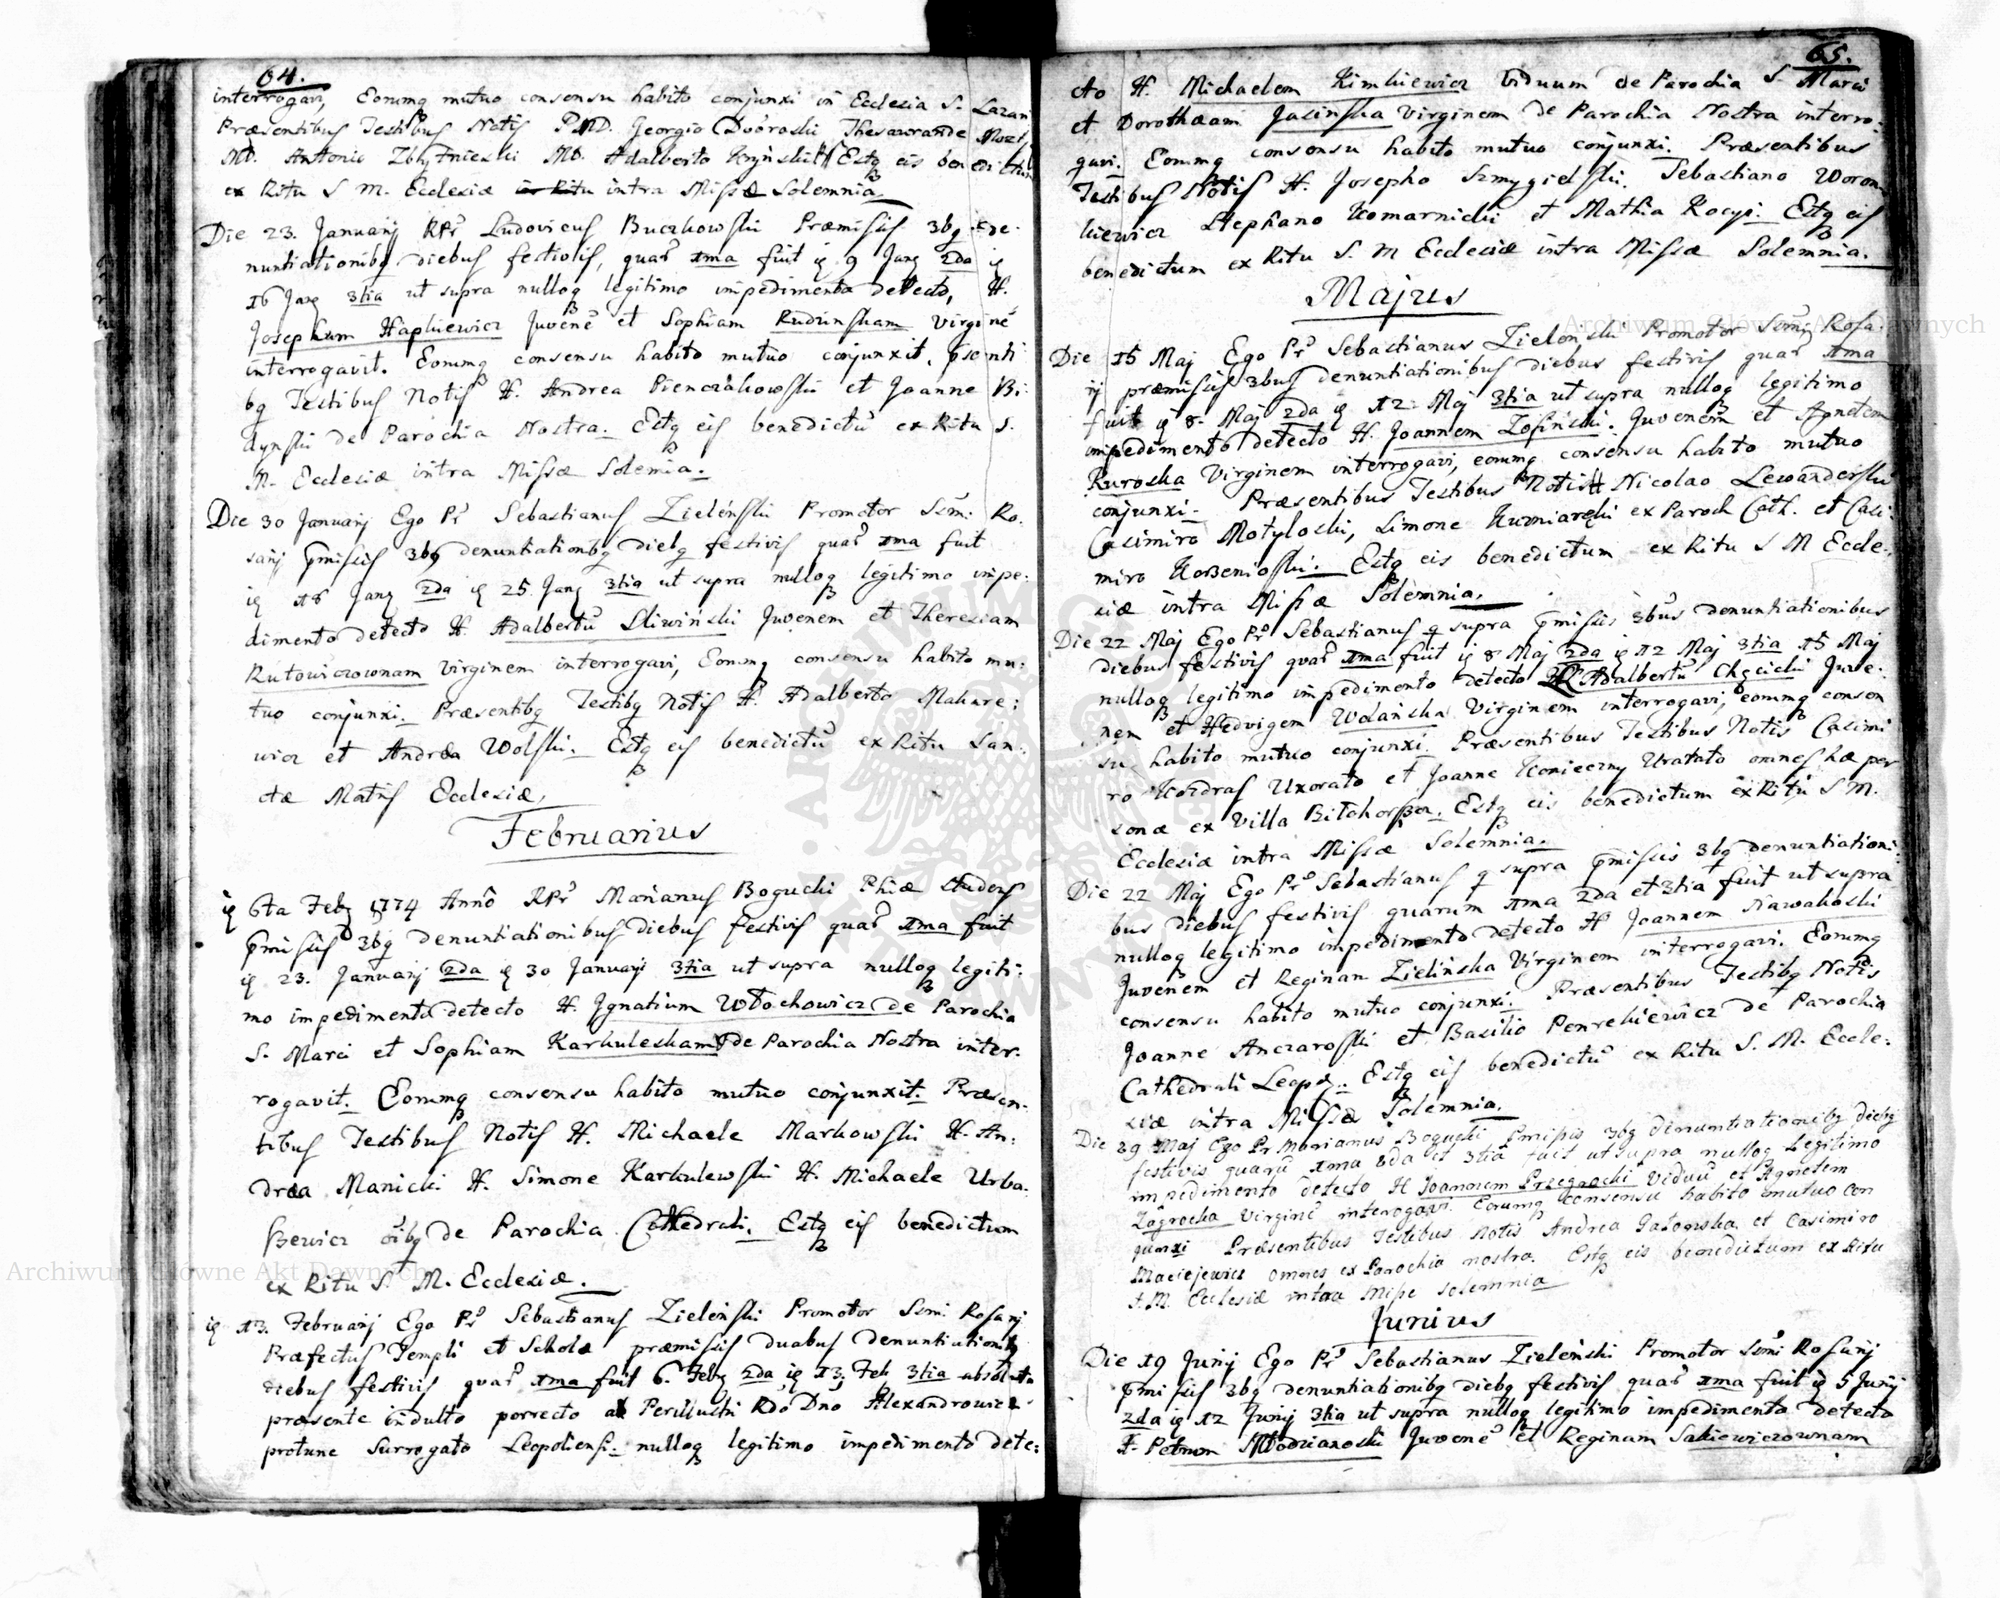 64.
interrogavi, Eorumq mutuo consensu habito conjunxi in Ecclesia S. Lazari
Præsentibus Testibus Notis Georgio Dworaski
MD. Antonio MD. Adalberto Estq eis benedictum
ex Ritu S M. Ecclesiæ in Ritu intra Missæ Solemnia.
Die 23. Januarij RPr Ludovicus Buczkowski Præmissis 3bq de-
nuntiationibq diebus festivis, quar 1ma fuit 9 Janq 2da
16 Janq 3tia ut supra nulloq legitimo impedimento detecto, H.
Josephum Hapkiewicz Juvenē et Sophiam Rudzinskam Virginē
interrogavit. Eorumq consensu habito mutuo conjunxit. psenti-
bq Testibus Notis H. Andrea Pienczakowski et Joanne Bi-
lynski de Parochia Nostra. Estq eis benedictū ex Ritu S.
M. Ecclesiæ intra Missæ Solemnia.
Die 30 Januarij Ego Pr Sebastianus Zielenski Promotor Ssmi Ro-
sarij pmissis 3bq denuntiationibq diebq festivis quar 1ma fuit
18 Janq 2da 25 Janq 3tia ut supra nulloq legitimo impe-
dimento detecto H. Adalbertū Sliwiński Juvenem et Theresiam
Rutowiczownam Virginem interrogavi, Eorumq consensu habito mu-
tuo conjunxi. Præsentibq Testibq Notis H. Adalberto Makare-
wicz et Andrea Wolski. Estq eis benedictū ex Ritu San-
ctæ Matris Ecclesiæ.
Februarius
6ta Febq 1774 Anno RPr Marianus Bogucki Phiæ Studens
pmissis 3bq denuntiationibus diebus festivis quar 1ma fuit
23. Januarij 2da 30 Januarij 3tia ut supra nulloq legiti-
mo impedimento detecto H. Ignatium Włochowicz de Parochia
S. Marci et Sophiam Karkuleskam de Parochia Nostra inter-
rogavit. Eorumq consensu habito mutuo conjunxit. Præsen-
tibus Testibus Notis H. Michaele Markowski H. An-
drea Manicki H. Simone Karkulewski H. Michaele Urba-
szewicz oibq de Parochia Cathedrali. Estq eis benedictum
ex Ritu S. M. Ecclesiæ.
13. Februarij Ego Pr Sebastianus Zieleński Promotor Ssmi Rosarij
Præfectus Templi et Scholæ præmissis duabus denuntiationibq
diebus festivis quar 1ma fuit 6. Febq 2da 13. Feb 3tia absoluta
præsente indulto porrecto a Perillustri Rdo Dno Alexandrowicz
protunc Surrogato Leopoliensi. nulloq legitimo impedimento dete-
65.
cto H. Michaelem Kimkiewicz Viduum de Parochia S Marci
et Dorotheam Jasinska Virginem de Parochia Nostra interro-
gavi. Eorumq consensu habito mutuo conjunxi. Præsentibus
Testibus Notis H. Josepho Szmygielski. Sebastiano Woron-
kiewicz Stephano Komarnicki et Mathia Kocyi. Estq eis
benedictum ex Ritu S. M Ecclesiæ intra Missæ Solemnia.
Majus
Die 15 Maj Ego Pr Sebastianus Zielonski Promotor Ssmi Rosa-
rij præmissis 3bus denuntiationibus diebus festivis quar 1ma
fuit 8 Maj 2da 12 Maj 3tia ut supra nulloq legitimo
impedimento detecto H. Joannem Zosinski. Juvenem et Agnetem
Kuroska Virginem interrogavi, eorumq consensu habito mutuo
conjunxi. Præsentibus Testibus Notis H Nicolao Lewanderski
Casimiro Motyloski, Simone Kurniarski ex Paroch Cath. et Casi-
miro Korzenioski. Estq eis benedictum ex Ritu S M Eccle-
siæ intra Missæ Solemnia.
Die 22 Maj Ego Pr Sebastianus q supra pmissis 3bus denuntiationibus
diebus festivis quar 1ma fuit 8 Maj 2da 12 Maj 3tia 15 Maj
nulloq legitimo impedimento detecto Adalbertū Chęcicki Juve-
nem et Hedvigem Wolańska Virginem interrogavi, eorumq consen
su habito mutuo conjunxi. Præsentibus Testibus Notis Casimi
ro Uxorato et Joanne Konieczny Uxorato omnes hæ per
sonæ ex Villa Bilohorszcz. Estq eis benedictum ex Ritu S M.
Ecclesiæ intra Missæ Solemnia.
Die 22 Maj Ego Pr Sebastianus q supra pmissis 3bq denuntiationi-
bus diebus festivis quarum 1ma 2da et 3tia fuit ut supra
nulloq legitimo impedimento detecto H Joannem Nawakoski
Juvenem et Reginam Zielinska Virginem interrogavi. Eorumq
consensu habito mutuo conjunxi. Præsentibus Testibq Notis
Joanne Anczaroski et Basilio Penrekiewicz de Parochia
Cathedrali Leopo. Estq eis benedictū ex Ritu S. M. Eccle-
siæ intra Missæ Solemnia.
Die 29 Maj Ego Pr Marianus Bogucki Pmissis 3bq denuntiationibq diebq
festivis quarū 1ma 2da et 3tia fuit ut supra nulloq legitimo
impedimento detecto H Joannem Przegrocki Viduū et Agnetem
Zagrocka Virginē interrogavi. Eorumq consensu habito mutuo con
junxi Præsentibus Testibus Notis Andrea Gałowska et Casimiro
Maciejewicz omnes ex Parochia nostra. Estq eis benedictum ex Ritu
S. M. Ecclesiæ intra Missæ solemnia
Junius
Die 19 Junij Ego Pr Sebastianus Zieleński Promotor Ssmi Rosarij
pmissis 3bq denuntiationibq diebq festivis quar 1ma fuit 5 Junij
2da 12 Junij 3tia ut supra nulloq legitimo impedimento detecto
H. Petrum Młodzianoski Juvenē et Reginam Sakiewiczownam
Archiwum Główne Akt Dawnych
Archiwum Główne Akt Dawnych